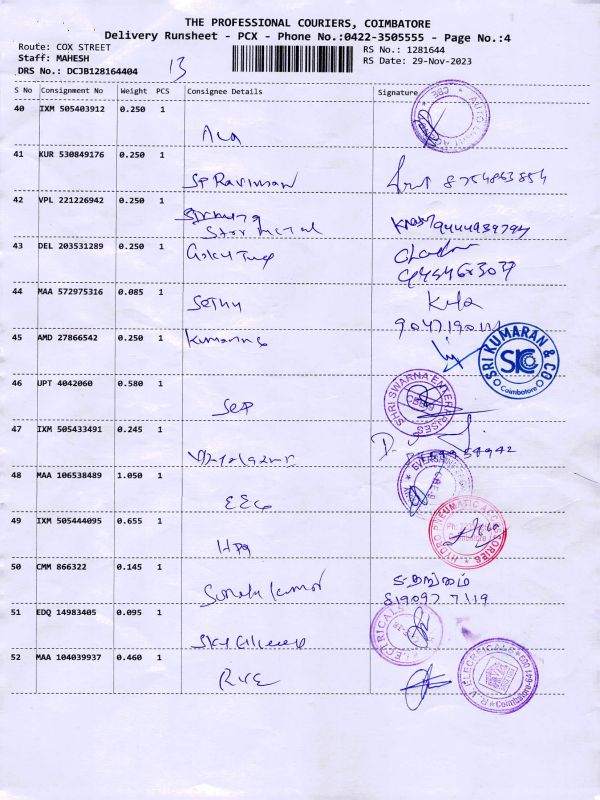 THE PROFESSIONAL COURIERS, COIMBATORE
Delivery Runsheet - PCX - Phone No.:0422-3505555 - Page No.:4
Route: COX STREET
Staff: MAHESH
DRS No.: DCJB128164404
13
RS No.: 1281644
RS Date: 29-Nov-2023
S No Consignment No Weight PCS Consignee Details Signature
40 IXM 505403912 0.250 1
ACA
41 KUR 530849176 0.250 1
SP Raviman 8754863854
42 VPL 221226942 0.250 1
Star metal 9444939794
43 DEL 203531289 0.250 1
44 MAA 572975316 0.085 1
Sethu
45 AMD 27866542 0.250 1
Kumarans
SRI KUMARAN & CO
SKC
Coimbatore
46 UPT 4042060 0.580 1
SEP
SHRI SWARNA ENTERPRISES
47 IXM 505433491 0.245 1
48 MAA 106538489 1.050 1
EEC
49 IXM 505444095 0.655 1
HPA
HYDRO PNEUMATIC ACCESSORIES
Coimbatore
50 CMM 866322 0.145 1
Suresh Kumar
51 EDQ 14983405 0.095 1
ELECTRICALS
52 MAA 104039937 0.460 1
RVE
R.V. ELECTRICALS